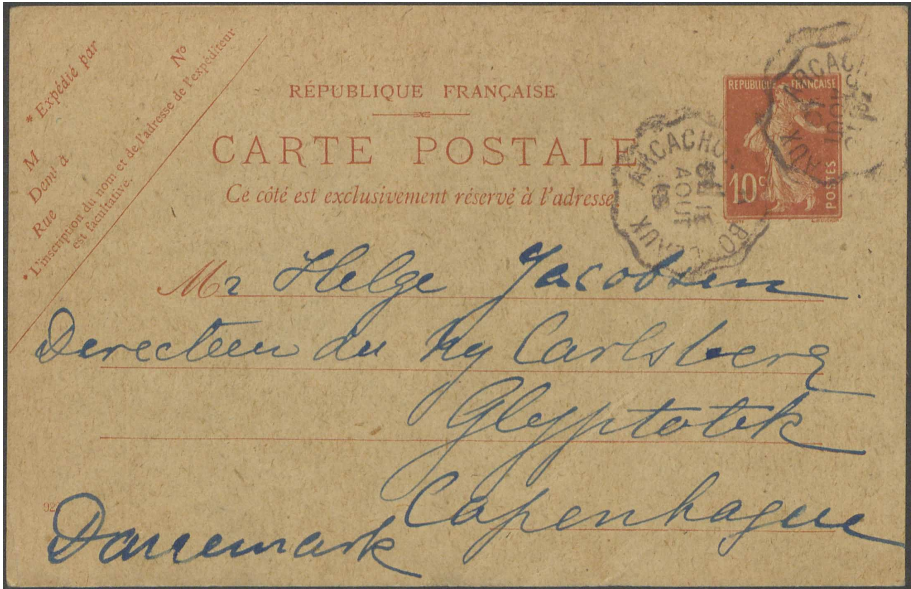 * Expédié par
M
Demt à
Rue
N°
* L'inscription du nom et de l'adresse de l'expéditeur
est facultative.
RÉPUBLIQUE FRANÇAISE
CARTE POSTALE
Ce côté est exclusivement réservé à l'adresse.
RÉPUBLIQUE FRANÇAISE
10c
POSTES
ARCACHON
AOUT
Mr Helge Jacobsen
Directeur du Ny Carlsberg
Glyptotek
Copenhague
Danemark